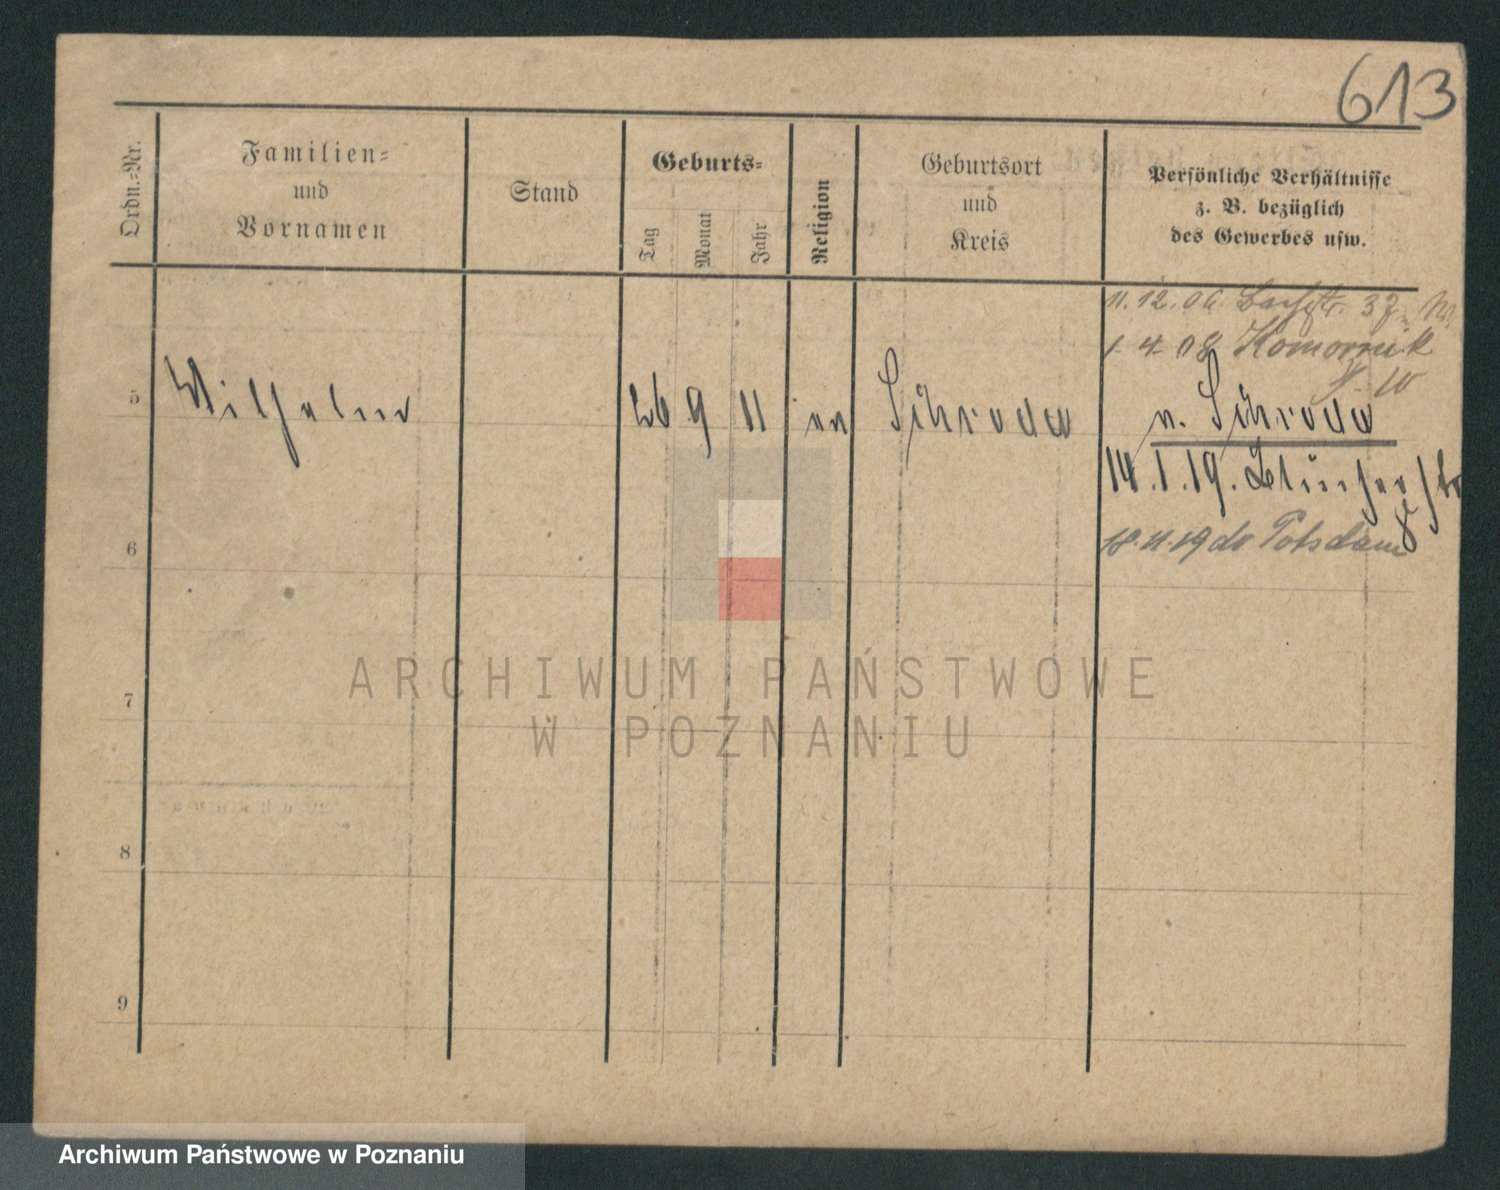 613
Ordn.-Nr.
Familien-
und
Vornamen
Stand
Geburts-
Tag
Monat
Jahr
Religion
Geburtsort
und
Kreis
Persönliche Verhältnisse
z. B. bezüglich
des Gewerbes usw.
11. 12. 06 37
1. 4. 08 Komornik
5 Wilhelm 26 9 11 Schroda
n. Schroda
14. 1. 19. Blücherstr
6
18. 11. 19 Potsdam
7
8
9
ARCHIWUM PAŃSTWOWE
W POZNANIU
Archiwum Państwowe w Poznaniu